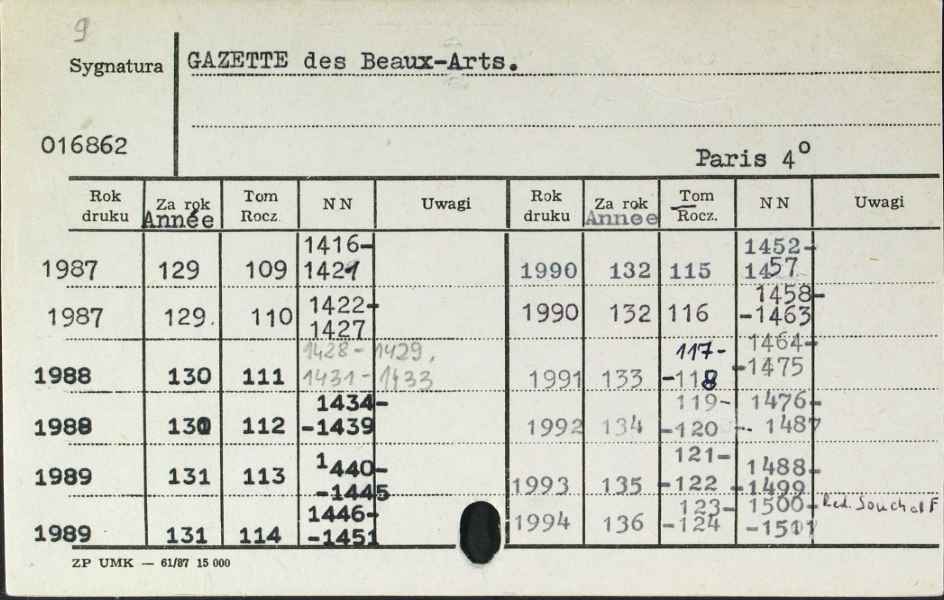 9
Sygnatura GAZETTE des Beaux-Arts.
016862
Paris 4º
Rok druku Za rok Année Tom Rocz. NN Uwagi Rok druku Za rok Annee Tom Rocz. NN Uwagi
1987 129 109 1416-1421 1990 132 115 1452-1457
1987 129. 110 1422-1427 1990 132 116 1458--1463
1988 130 111 1428-1429, 1431-1433 1991 133 117--118 1464--1475
1988 130 112 1434--1439 1992 134 119--120 1476-- 1487
1989 131 113 1440--1445 1993 135 121--122 1488--1499
1989 131 114 1446--1451 1994 136 123--124 1500--1511 Red.
ZP UMK — 61/87 15 000